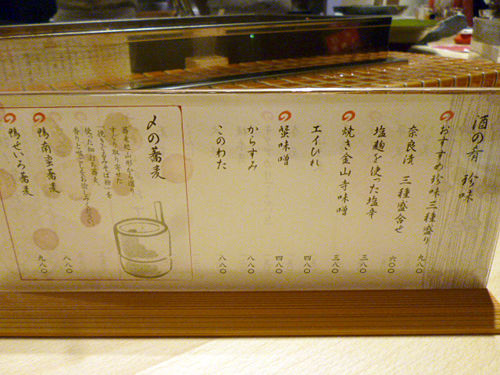 酒の肴 珍味
おすすめ珍味三種盛り 九八〇
奈良漬 三種盛合せ 六〇〇
塩麹を使った塩辛 三八〇
焼き金山寺味噌 三八〇
エイひれ 四八〇
蟹味噌 四八〇
からすみ 八八〇
このわた 八八〇
〆の蕎麦
鴨南蛮蕎麦 八八〇
鴨せいろ蕎麦 九八〇